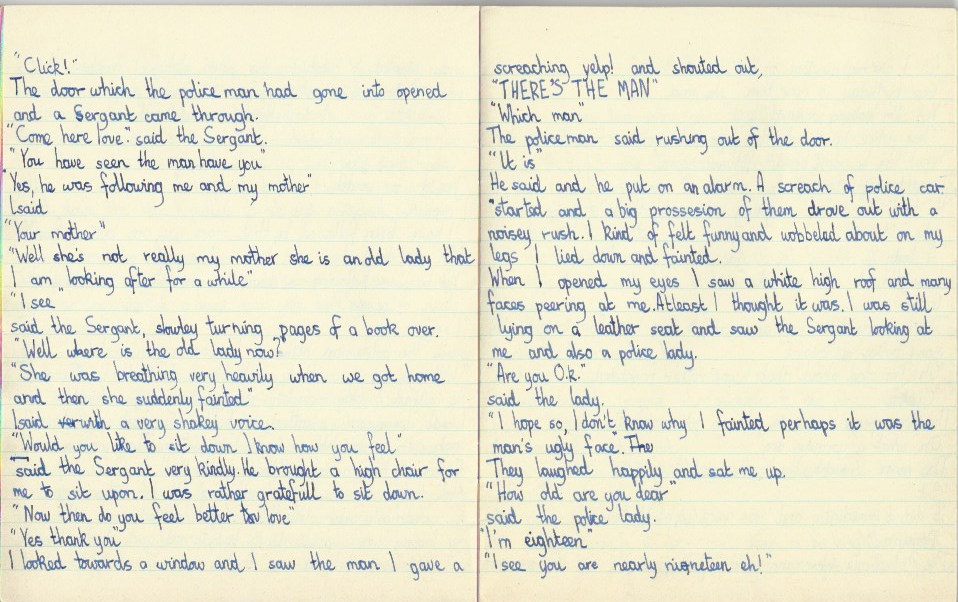 "Click!"
The door which the police man had gone into opened
and a Sergant came through.
"Come here love." said the Sergant.
"You have seen the man have you"
"Yes, he was following me and my mother"
I said
"Your mother"
"Well she's not really my mother she is an old lady that
I am "looking after for a while"
"I see"
said the Sergant, slowley turning pages of a book over.
"Well where is the old lady now?"
"She was breathing very heavily when we got home
and then she suddenly fainted"
I said with a very shakey voice.
"Would you like to sit down I know how you feel"
said the Sergant very kindly. He brought a high chair for
me to sit upon. I was rather gratefull to sit down.
"Now then do you feel better love"
"Yes thank you"
I looked towards a window and I saw the man I gave a
screaching yelp! and shouted out,
"THERE'S THE MAN"
"Which man"
The policeman said rushing out of the door.
"It is"
He said and he put on an alarm. A screach of police car
"started and a big prossesion of them drove out with a
noisey rush. I kind of felt funny and wobbeled about on my
legs I lied down and fainted.
When I opened my eyes I saw a white high roof and many
faces peering at me. Atleast I thought it was. I was still
lying on a leather seat and saw the Sergant looking at
me and also a police lady.
"Are you O.k."
said the lady.
"I hope so, I don't know why I fainted perhaps it was the
man's ugly face". The
They laughed happily and sat me up.
"How old are you dear"
said the police lady.
"I'm eighteen"
"I see you are nearly nineteen eh!"